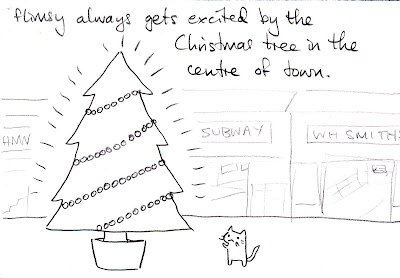 flimsy always gets excited by the
Christmas tree in the
centre of town.
HMV
SUBWAY
WH SMITHS